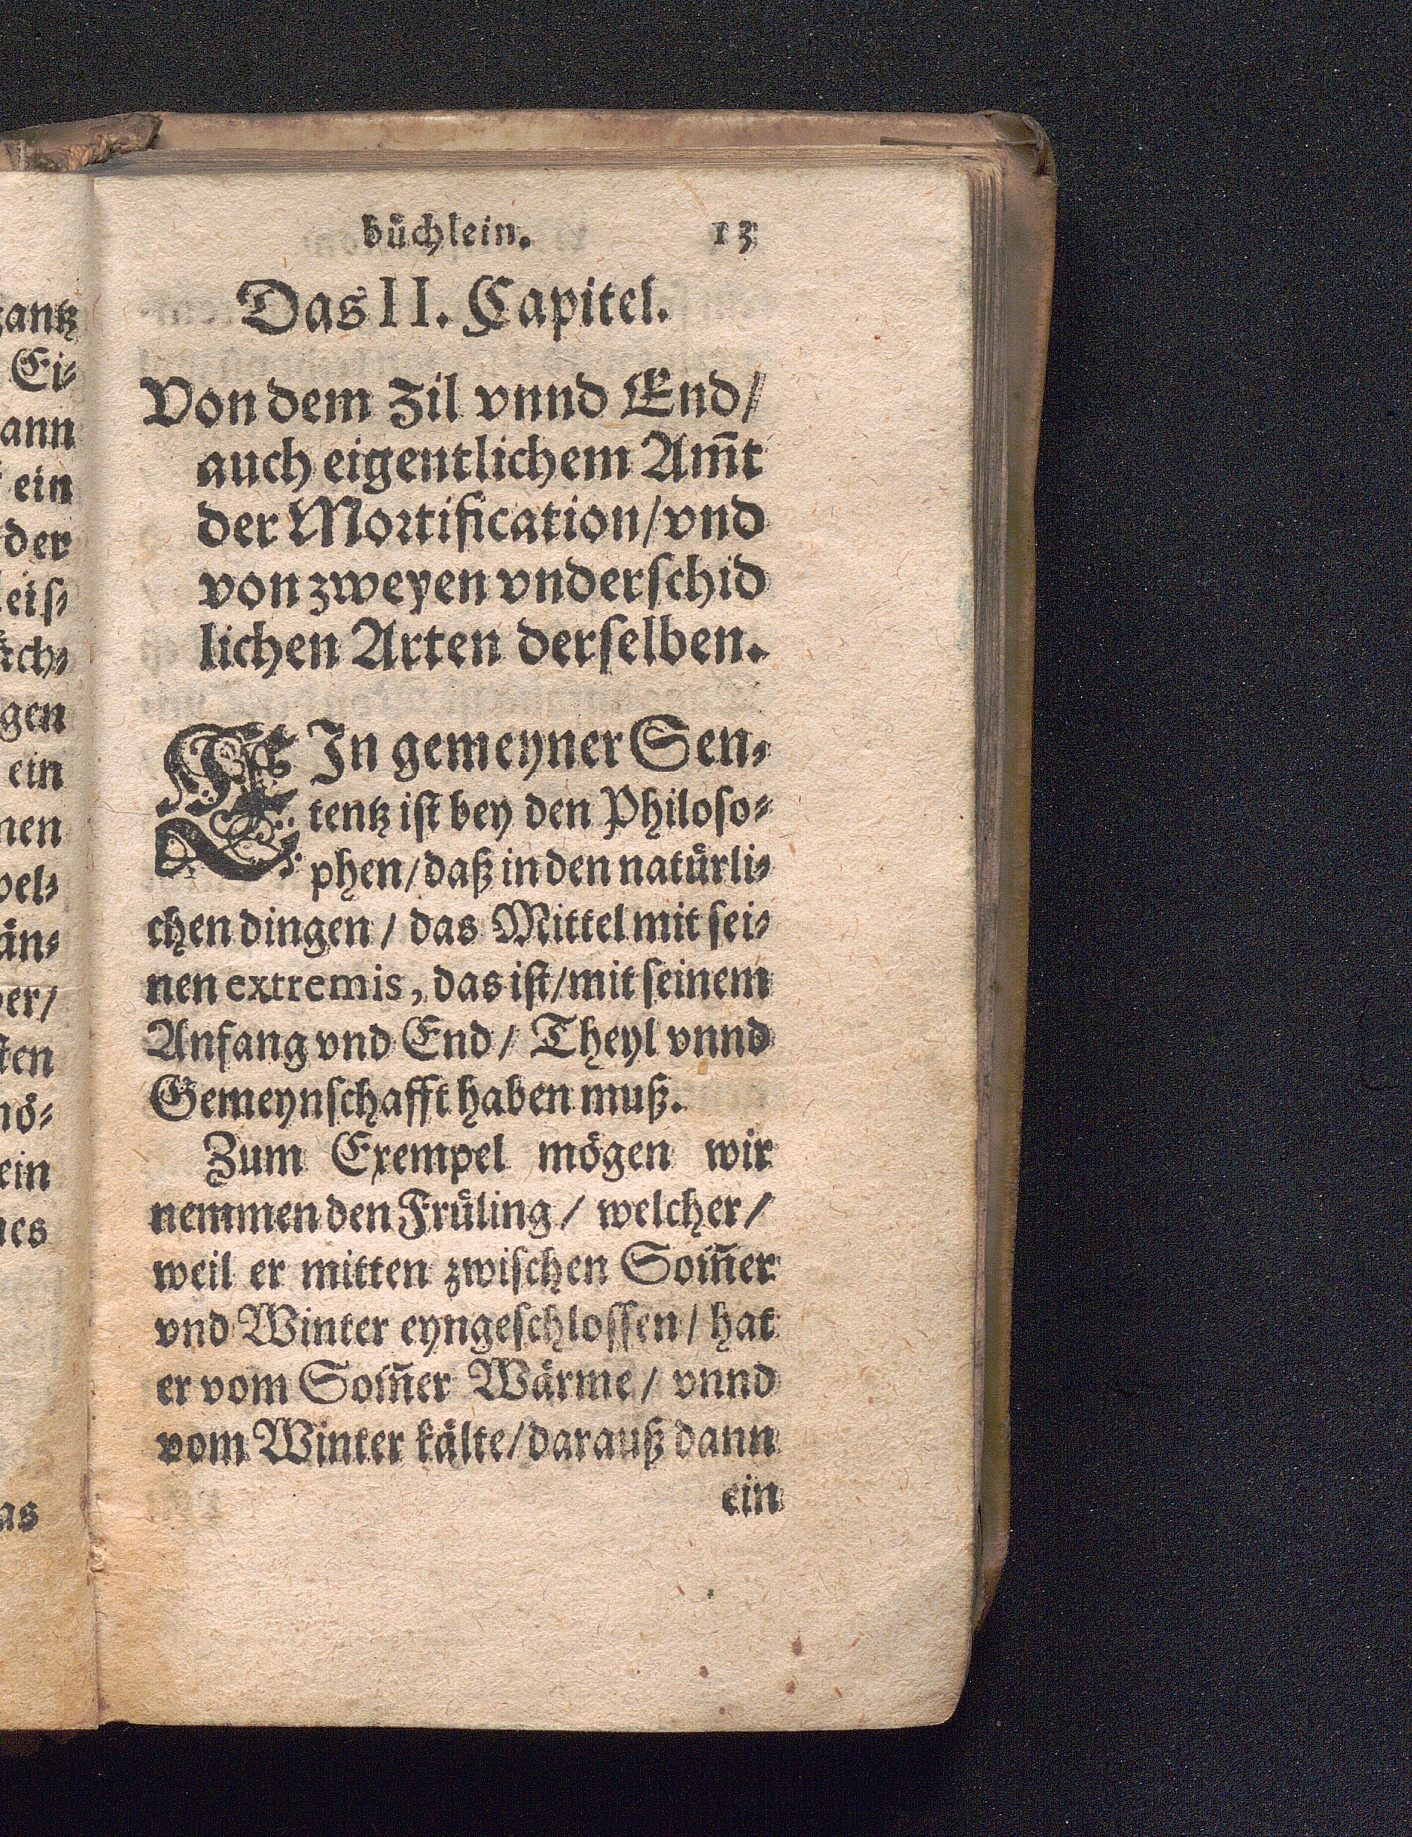 büchlein. 13
Das II. Capitel.
Von dem Zil vnnd End/
auch eigentlichem Am̃t
der Mortification/vnd
von zweyen vnderschid
lichen Arten derselben.
EIn gemeyner Sen-
tentz ist bey den Philoso-
phen/daß in den natürli-
chen dingen / das Mittel mit sei-
nen extremis, das ist/mit seinem
Anfang vnd End / Theyl vnnd
Gemeynschafft haben muß.
Zum Exempel mögen wir
nemmen den Früling / welcher/
weil er mitten zwischen Som̃er
vnd Winter eyngeschlossen / hat
er vom Som̃er Wärme / vnnd
vom Winter kälte/darauß dann
ein
antz
Ei-
ann
ein
der
eis-
ch-
gen
ein
nen
wel-
än-
er/
ten
nö-
ein
nes
as